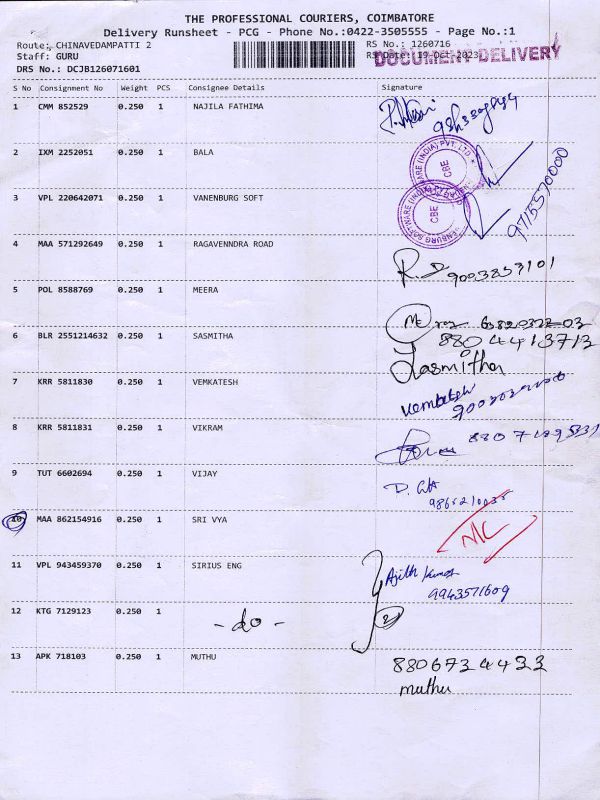 THE PROFESSIONAL COURIERS, COIMBATORE
Delivery Runsheet - PCG - Phone No.:0422-3505555 - Page No.:1
Route: CHINAVEDAMPATTI 2
RS No.: 1260716
Staff: GURU
RS Date: 19-Oct-2023
DOCUMENT DELIVERY
DRS No.: DCJB126071601
S No Consignment No Weight PCS Consignee Details Signature
1 CMM 852529 0.250 1 NAJILA FATHIMA
2 IXM 2252051 0.250 1 BALA
3 VPL 220642071 0.250 1 VANENBURG SOFT
9715570000
4 MAA 571292649 0.250 1 RAGAVENNDRA ROAD
9003853101
5 POL 8588769 0.250 1 MEERA
6 BLR 2551214632 0.250 1 SASMITHA
8804413713
Sasmitha
7 KRR 5811830 0.250 1 VEMKATESH
Vembatesh
8 KRR 5811831 0.250 1 VIKRAM
9 TUT 6602694 0.250 1 VIJAY
10 MAA 862154916 0.250 1 SRI VYA
N/C
11 VPL 943459370 0.250 1 SIRIUS ENG
Ajith Kumar
9943571609
12 KTG 7129123 0.250 1
- do -
2
13 APK 718103 0.250 1 MUTHU
8806734433
muthu